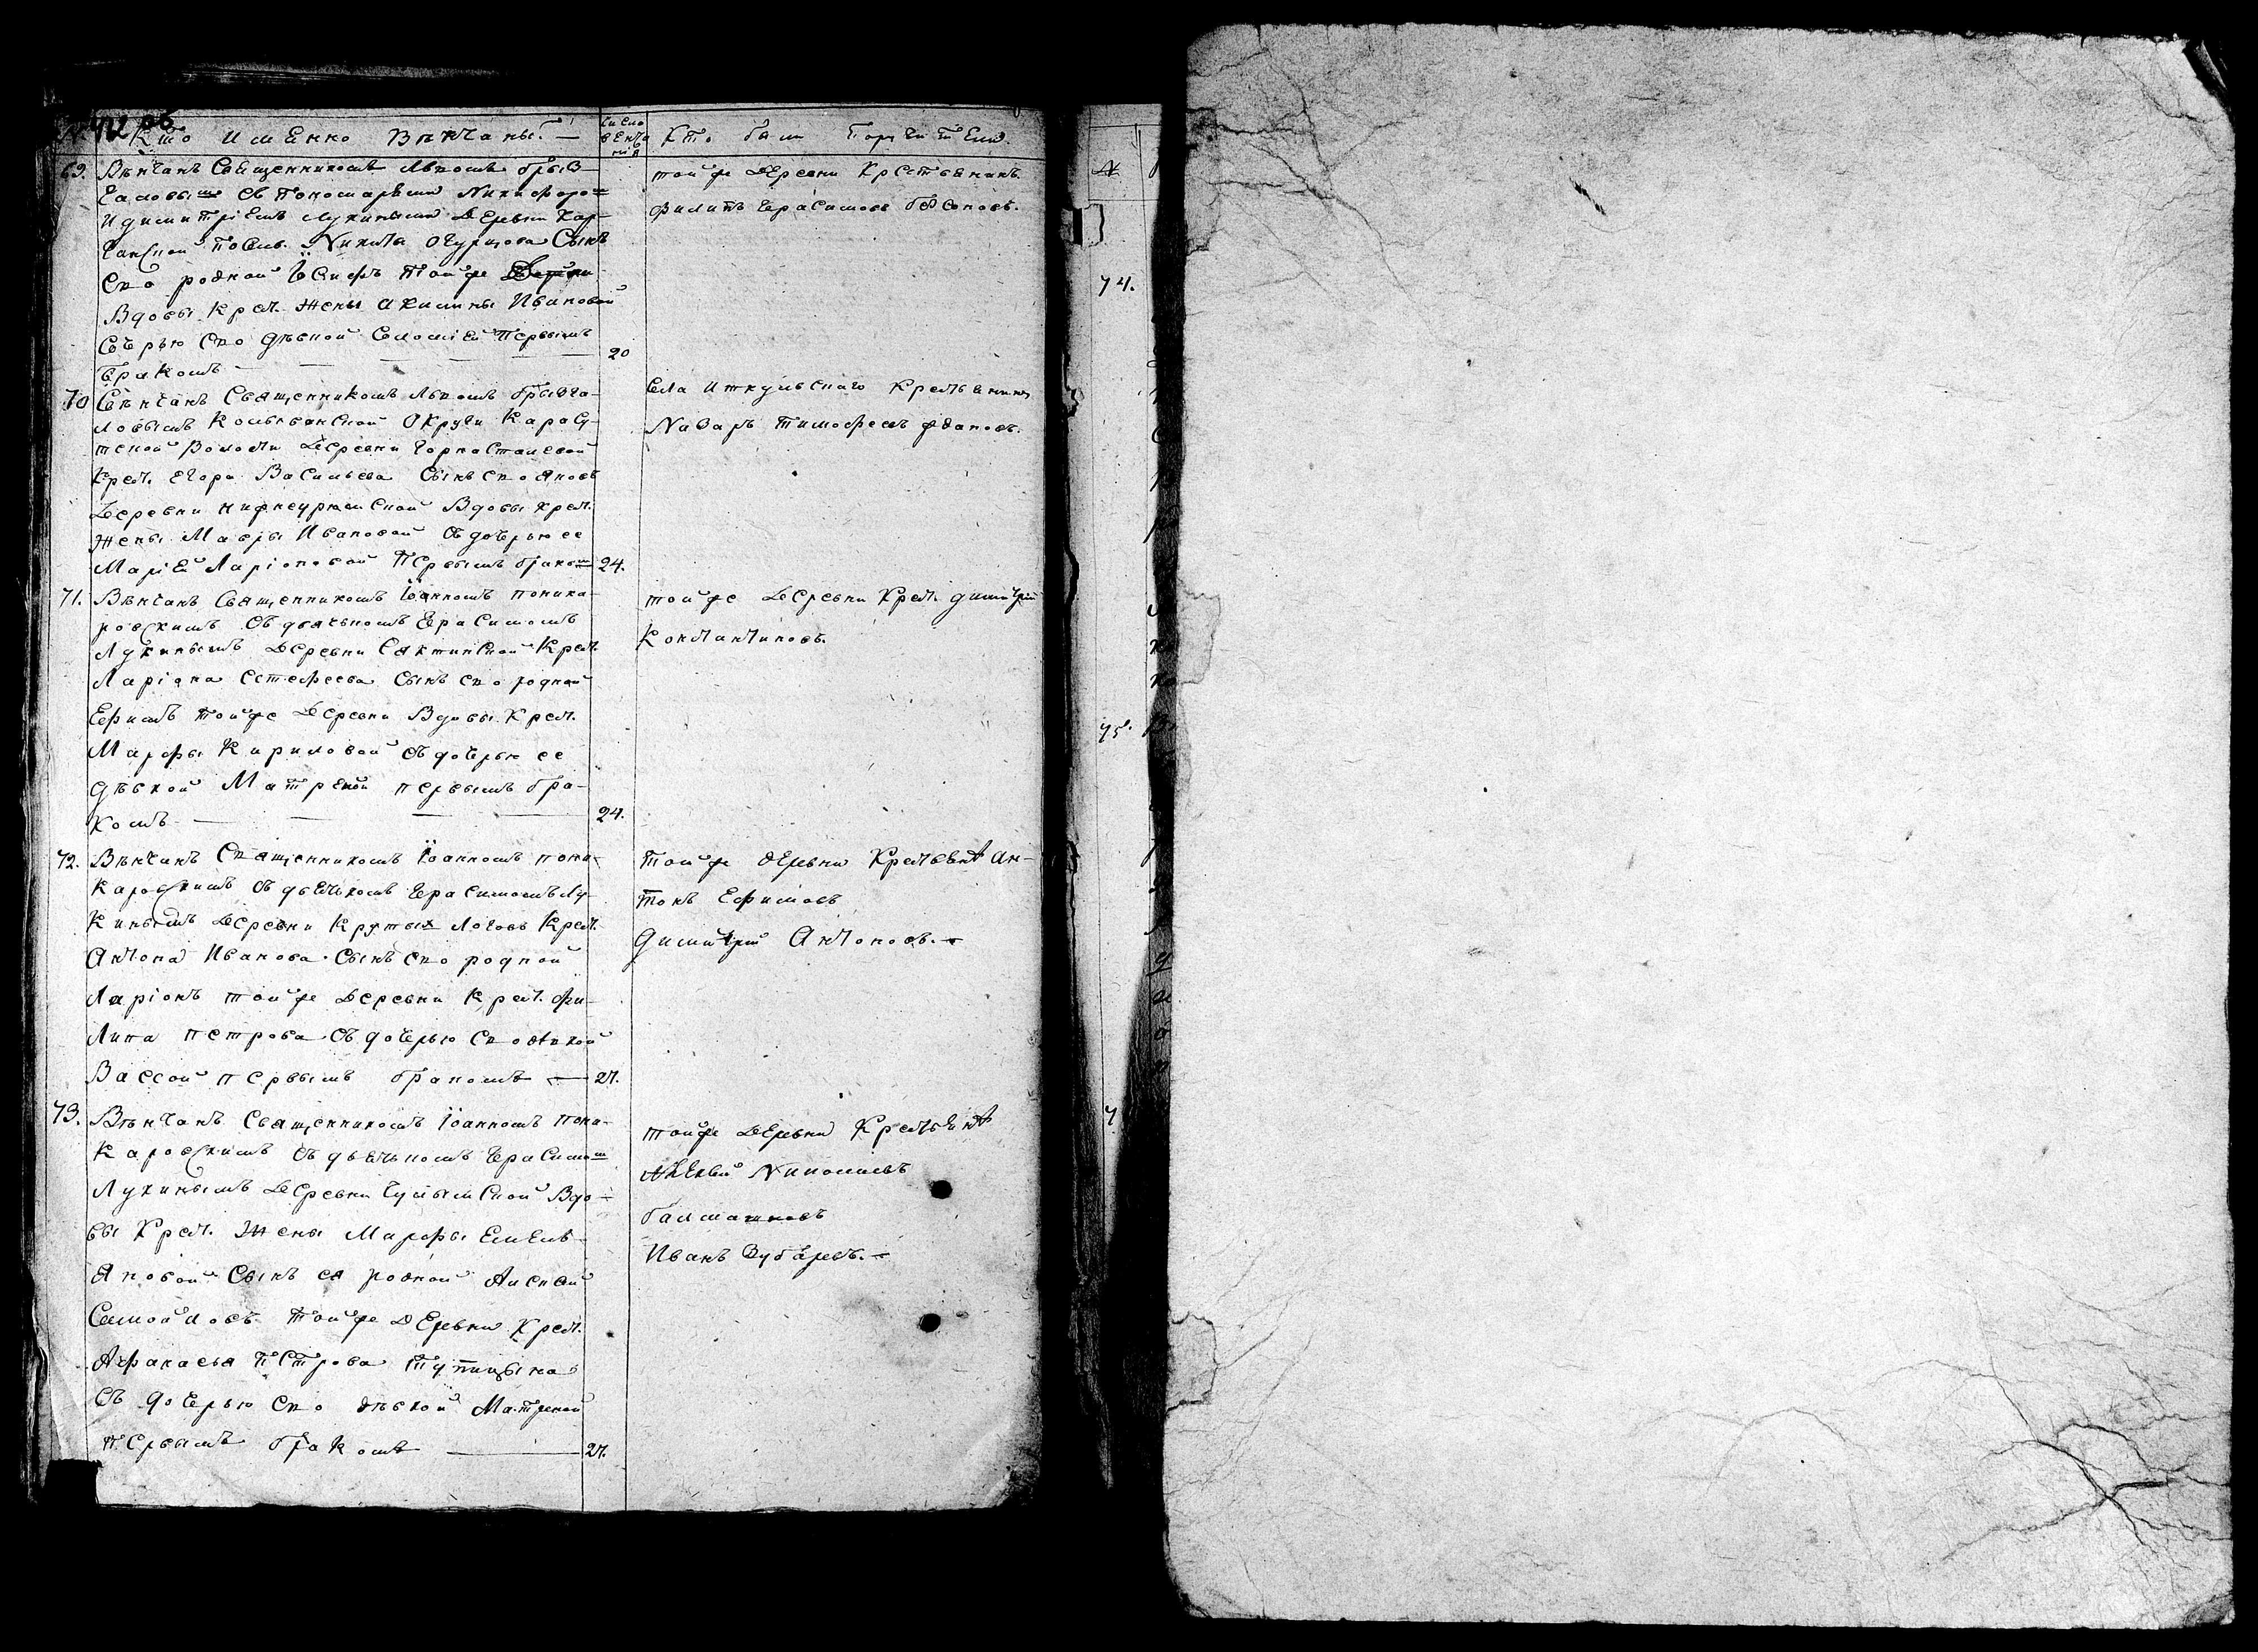 Кто имЕнно вѣнчаны. —
число вЕнчанія
Кто был поручитЕли.
69. Вѣнчанъ Священникомъ Львомъ Брыз-
галовымъ съ Пономарями Никифоро-
и димитріЕмъ Лукиными ДЕревни Кар-
посЕл. Никиты Огурцова Сынъ
Его родной Іосифъ тойже
Вдовы Крест. жены Акилины Ивановой
дочерью Его дѣвкой СоломіЕй Первымъ
бракомъ — 20
тойже дЕревни Крестьянинъ
Филипъ Герасимовъ
70 Вѣнчанъ Священникомъ Львомъ Брызга-
ловымъ Колыванской Округи Карасу-
тской Волости Деревни Горносталевой
Крест. Егора Васильева Сынъ Его Яковъ
Деревни Нижнеурюмской Вдовы Крест.
жены Мавры Ивановой съ дочерью ее
МаріЕй Ларіоновой Первымъ бракомъ 24.
Села Иткульского Крестьянинъ
Назаръ Тимофеевъ
71. Вѣнчанъ Священникомъ Іоанномъ Поника-
ровскимъ съ дьячькомъ Герасимомъ
Лукинымъ Деревни Сектинской Крест.
Ларіона Естефеева Сынъ Его родной
Ефимъ тойже Деревни Вдовы Крест.
Марфы Кириловой съ дочерью ее
дѣвкой Матреной первымъ бра-
комъ — 24.
тойже Деревни Крест. димитрій
Константиновъ.
72. Вѣнчанъ Священникомъ Іоанномъ Пони-
каровскимъ съ дьячькомъ Герасимомъ Лу-
кинымъ Деревни Крутыхъ Логовъ Крест.
Антона Иванова Сынъ Его родной
Ларіонъ тойже Деревни Крест. Фи-
липа Петрова съ дочерью Его дѣвкой
Вассой первымъ бракомъ — 27.
тойже дЕревни Крестьяня Ан-
тонъ Ефимовъ
димитрій Антоновъ. —
73. Вѣнчанъ Священникомъ Іоанномъ Пони-
каровскимъ съ дьячькомъ Герасимомъ
Лукинымъ Деревни Чулымской Вдо-
вы Крест. жены Марфы ЕмЕль-
яновой Сынъ ея родной Алексѣй
Самойловъ тойже дЕревни Крест.
Афанасья Петрова Тупицына
съ дочерью Его дѣвкой Матреной
первымъ бракомъ — 27.
тойже дЕревни Крестьяня
Николаевъ
Балмашновъ
Иванъ Зубаревъ. —
№
74.
75.